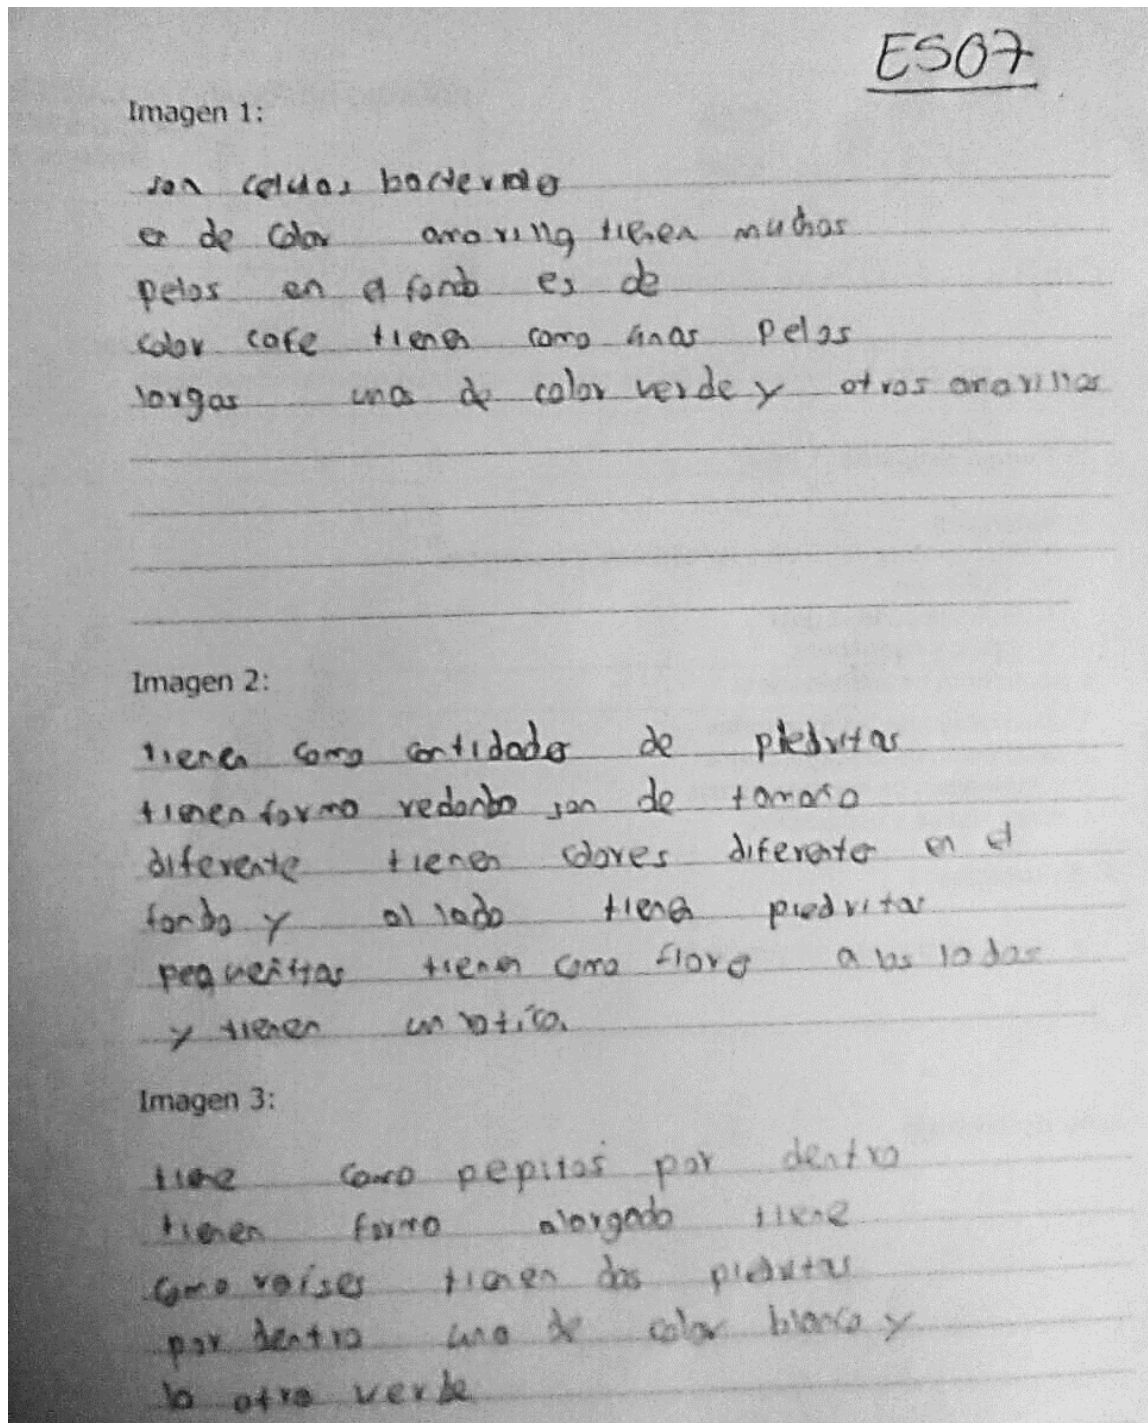 ES07
Imagen 1:
son celulas bacteriales
es de color amarillo tienen muchos
pelos en el fondo es de
color cafe tienen como unos pelos
largos unos de color verde y otros amarillos
Imagen 2:
tienen como cantidades de piedritas
tienen forma redonda son de tamaño
diferente tienen colores diferentes en el
fondo y al lado tienen piedritas
pequeñitas tienen como flores a los lados
y tienen un
Imagen 3:
tiene como pepitas por dentro
tienen forma alargado tiene
como raíses tienen dos piedritas
por dentro una de color blanco y
la otra verde